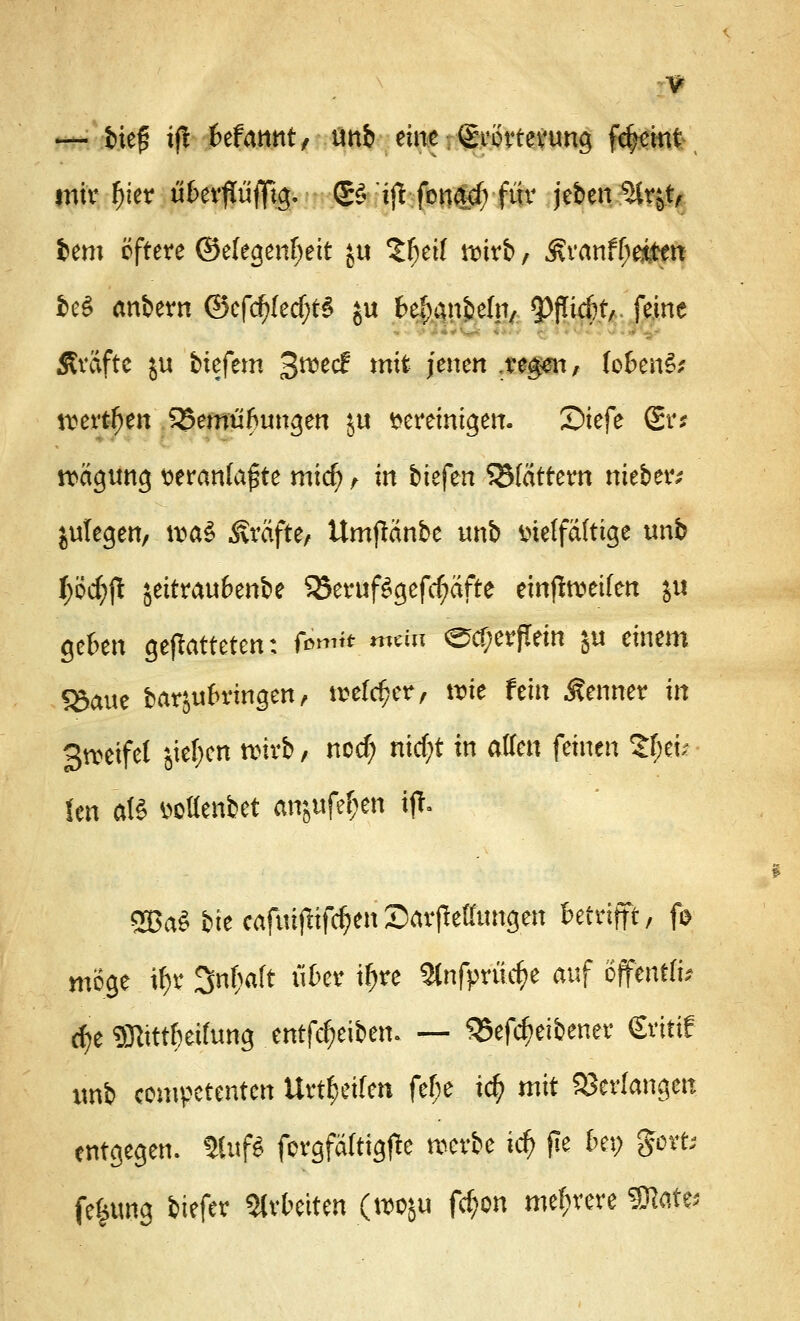 V
— dieß ist bekannt, und eine Erörterung scheint
mir hier überflüssig. Es ist sonach für jeden Arzt,
dem öftere Gelegenheit zu Theil wird, Krankheiten
des andern Geschlechts zu behandeln, Pflicht, seine
Kräfte zu diesem Zweck mit jenen regen, lobens-
werthen Bemühungen zu vereinigen. Diese Er-
wägung veranlaßte mich, in diesen Blättern nieder-
zulegen, was Kräfte, Umstände und vielfältige und
höchst zeitraubende Berufsgeschäfte einstweilen zu
geben gestatteten: somit mein Scherflein zu einem
Baue darzubringen, welcher, wie kein Kenner in
Zweifel ziehen wird, noch nicht in allen seinen Thei-
len als vollendet anzusehen ist.
Was die casuistischen Darstellungen betrifft, so
möge ihr Inhalt über ihre Ansprüche auf öffentli-
che Mittheilung entscheiden. — Bescheidener Critik
und competenten Urtheilen sehe ich mit Verlangen
entgegen. Aufs sorgfältigste werde ich sie bey Fort-
setzung dieser Arbeiten (wozu schon mehrere Mate-